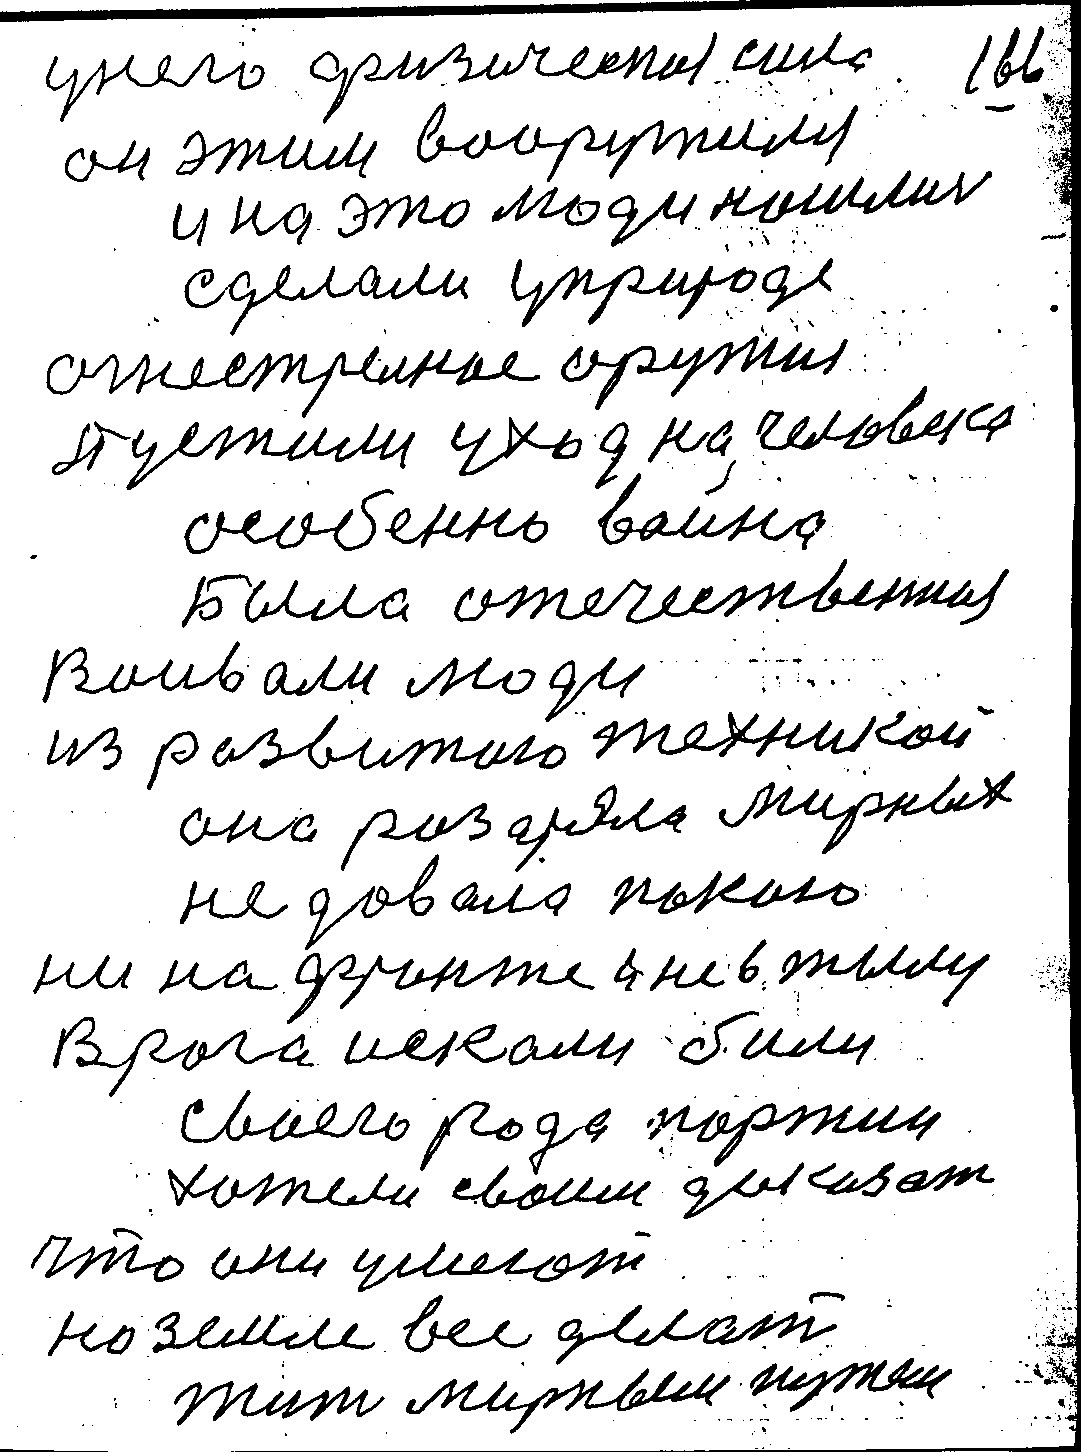 унего физическая сила 166
он этим вооружился
и на это люди нашлись
сделали уприроде
огнестрелное оружия
Пустили уход на человека
особенно война
Была отечественная
Воивали люди
из развитого техникой
она разаряла мирных
не довала покою
ни на фронте а не в тылу
Врага искали били
своего рода партии
хотели своим доказат
что они умегот
на земле все делат
жит мирным путем